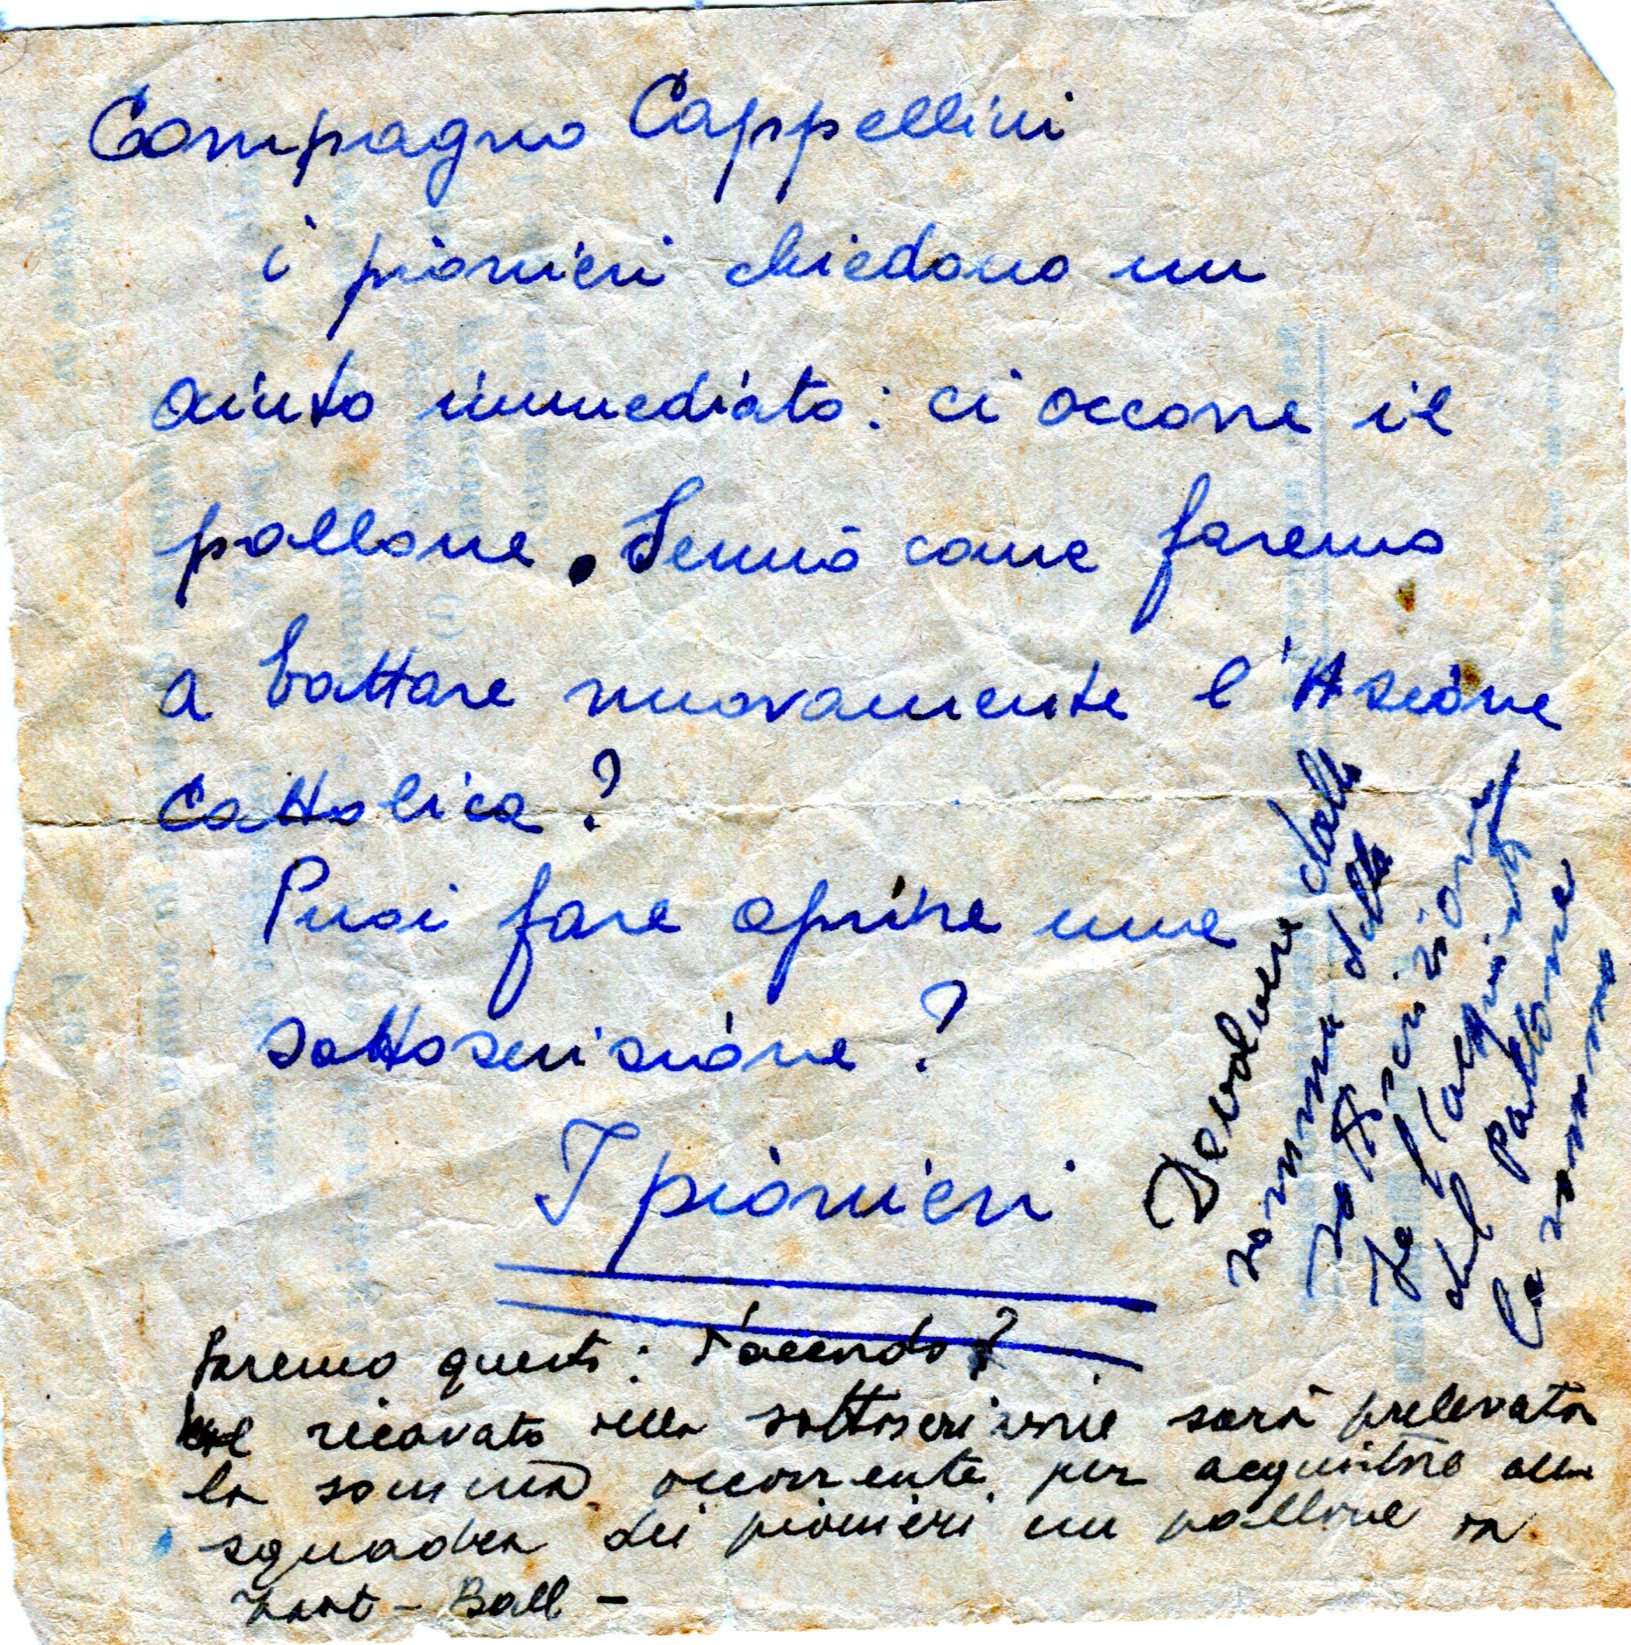 Compagno Cappellini
i pionieri chiedono un
aiuto immediato: ci occorre il
pallone. Sennò come faremo
a battare nuovamente l'Azione
Cattolica?
Puoi fare aprire una
sottoscrizione?
I pionieri
Devolvere dalla
somma della
sottoscrizione
per l'acquisto
del pallone
la somma
Faremo questo: d'accordo?
Nel ricavato della sottoscrizione sarà prelevata
la somma occorrente per acquistare alla
squadra dei pionieri un pallone da
Foot-Ball-